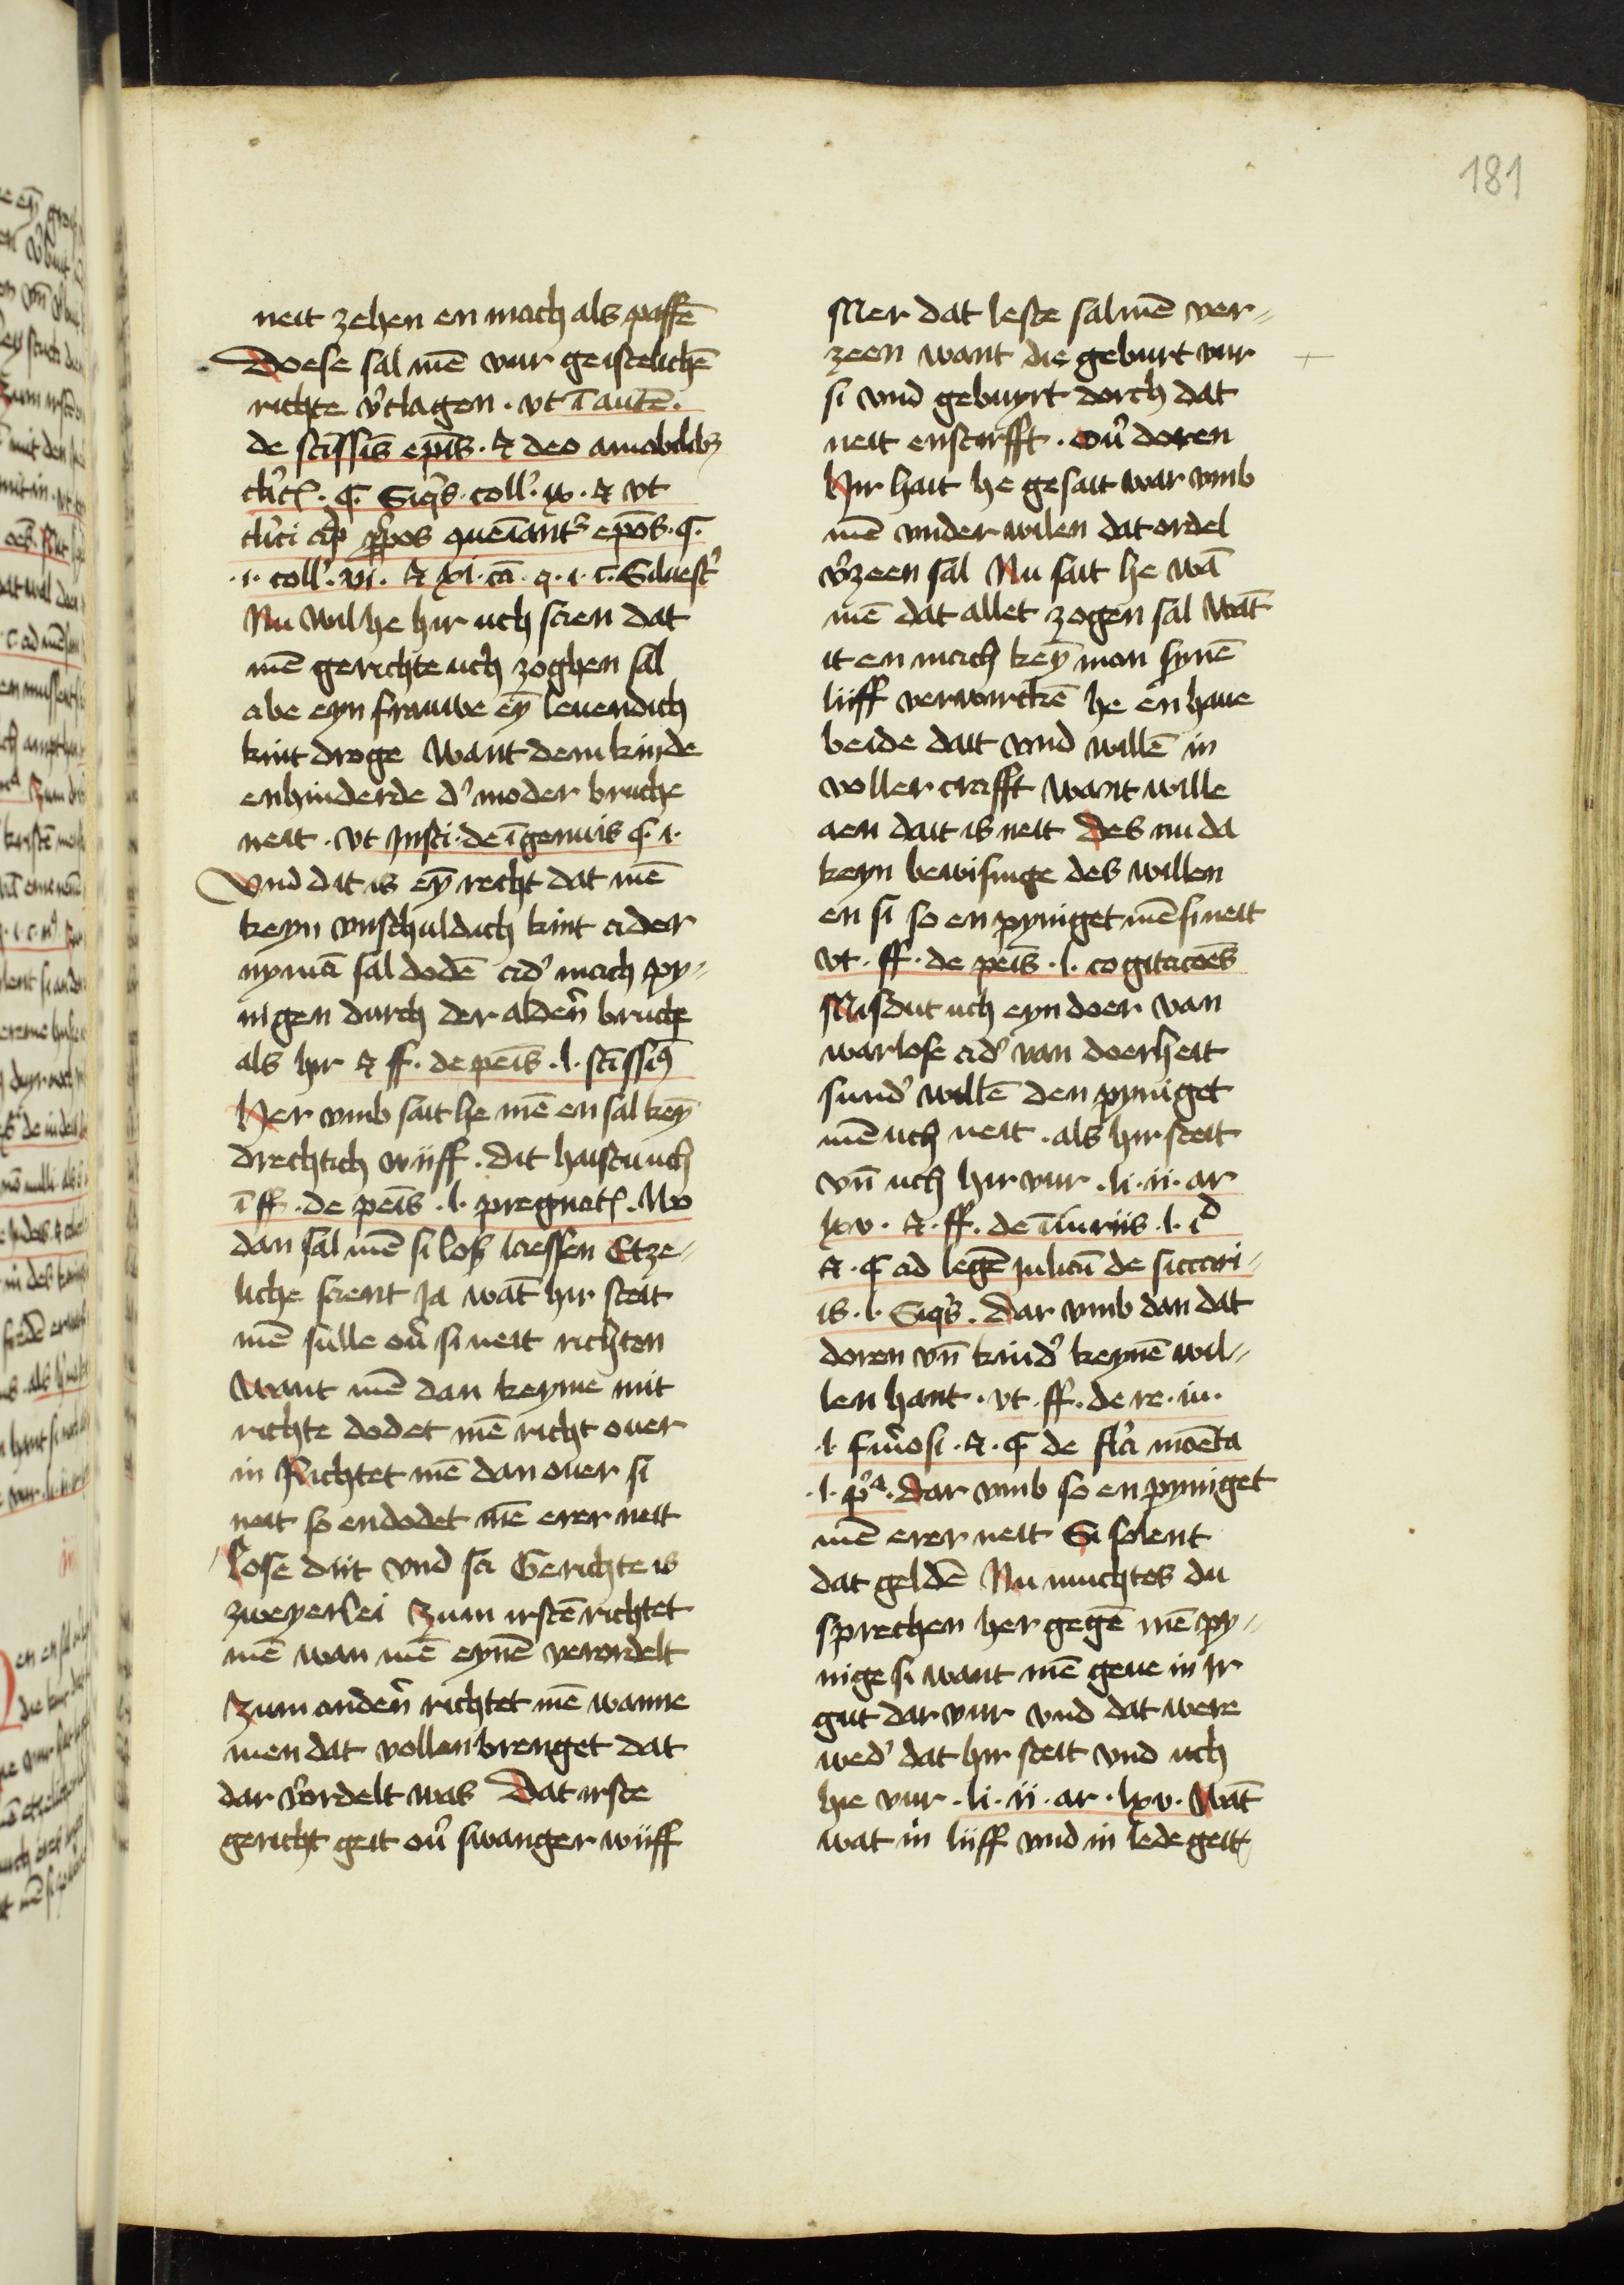 181
neit zehen en mach als paffē
Doese sal mē vur geistelichē
richte v᷑clagen . vt ī autē.
de scīssīs ep̄īs . et deo amabilibꝫ
cl'ic . ¶. Siq̄s . coll'. ix . et vt
cl'ici ap᷑ p̱p̄os queniant᷑ epōs . ¶.
.i. coll'. vi . et xi . cā . q . i . c . Siluest᷑
Nu wil he hir uch scien dat
mē gerichte uch zoghen sal
abe eyn frauwe eȳ leuendich
kint droge want dem kinde
enhinderde d' moder bruche
neit . vt Insti . de īgenuis ¶. i.
Vnd dit is eȳ recht dat mē
keyn vnschuldich kint ader
nyman sal dodē ad' mach py⸗
nigen durch der alden̄ bruche
als hir et ff . de peīs . l . scīssiꝯ
Her vmb sait he mē en sal keȳ
drechtich wijff . dit haistu uch
ī ff . de peīs . l . pregnat . Wo
dan sal mē si loß laessen Etze⸗
liche scient Ja wāt hir steit
mē sulle ou᷑ si neit richten
want mē dan keyme mit
richte dodet mē richt ouer
in Richtet mē dan ouer si
neit so endodet mē erer neit
Lose diit vnd sa Gerichte is
zweyerlei Zum irstē richtet
mē wan mē eynē verordelt
Zum anden̄ richtet mē wanne
men dat vollenbrenget dat
dar v᷑ordelt was Dat irste
gericht geit ou᷑ swanger wijff
Mer dat leste sal mē ver⸗
zeen want die geburt vur
si vnd gebuyrt dorch dat
neit enstirfft . Ou᷑ doren
Hir hait he gesait war vmb
mē vnder wilen dat ordel
v᷑zeen sal Nu sait he wā
mē dat allet zogen sal wāt
it en mach keȳ man synē
lijff verwirckē he en haue
beide dait vnd willē in
voller crafft want wille
aen dait is neit Des nu da
keyn bewisinge des willen
en si so en pyniget mē si neit
vt . ff . de peīs . l . cogitacōēs
Misdut uch eyn doer van
warlose ad' van doerheit
sund' willē den pyniget
mē uch neit . als hir steit
vn̄ uch hir vur . li . ii . ar
lxv . et . ff . de īiuriis . l . iᵈ
et . ¶ ad legē Juliā de siccari⸗
is . l . Siq̄s . Dar vmb dan dat
doren vn̄ kind' keynē wil⸗
len hant . vt . ff . de re . iu .
.l . furiosi . et . ¶ de fl'a mōēta
.l . p᷑ª . Dar vmb so en pyniget
mē erer neit Si solent
dat geldē Nu muchtes du
sprechen her gegē mē py⸗
nige si want mē geue in Ir
gut dar vur vnd dat were
wed' dat hir steit vnd uch
hie vur . li . ii . ar . lxv . Wāt
wat in lijff vnd in lede geit